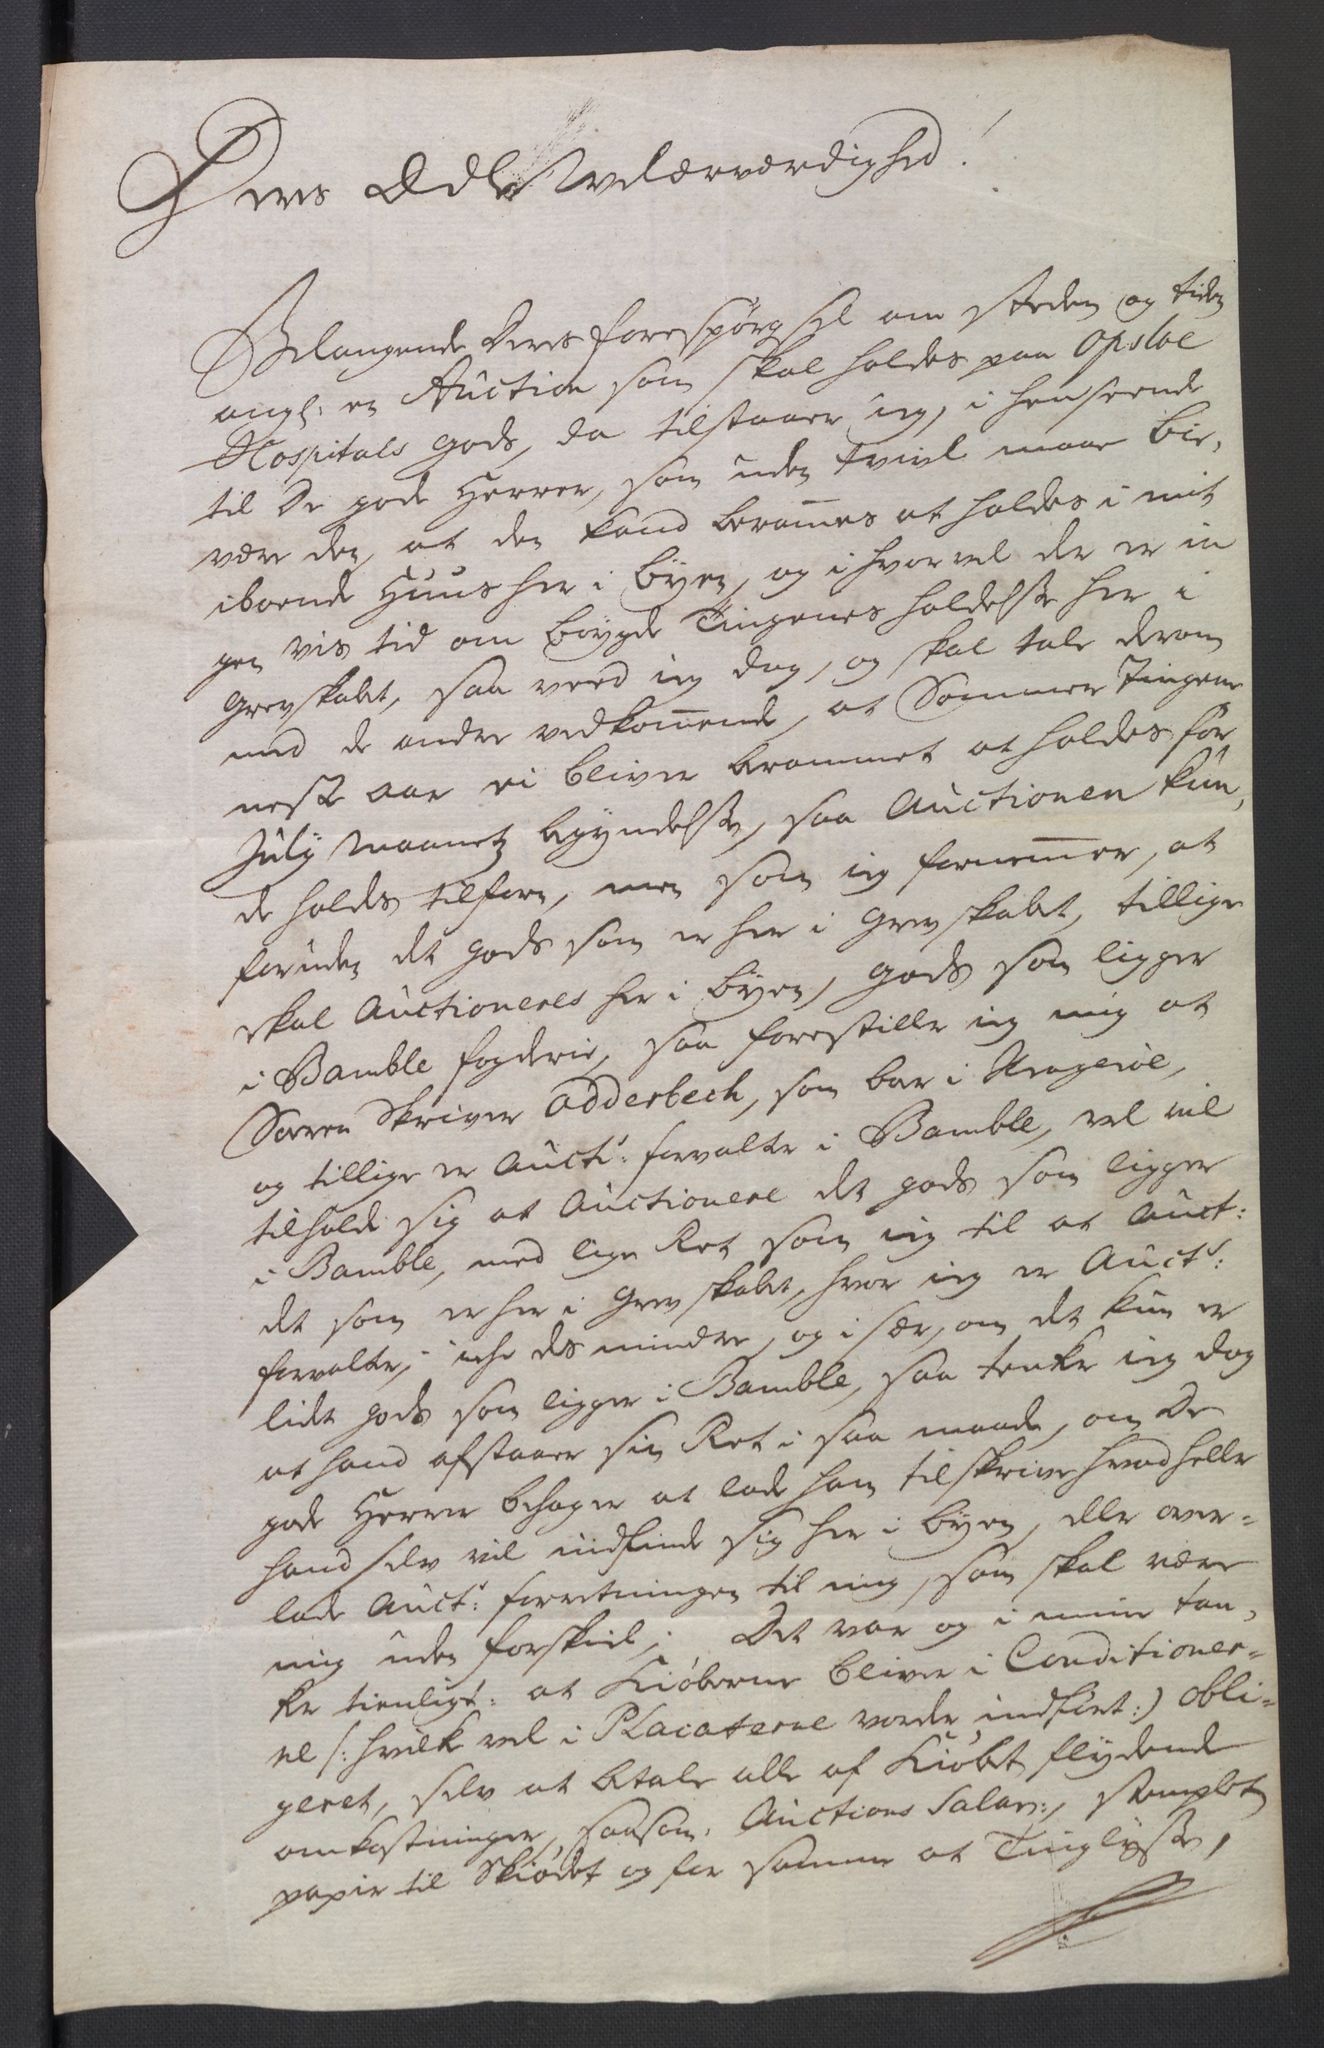 Deres Ædle Velærværdighed!
Belangende Deres forespørgsel om stæden og tiden
angl: en Auction som skal holdes paa Opsloe
Hospitals gods, da tilstaaer ieg, i henseende
til De gode Herrer, som uden tvivl maae bie,
være den, at den kand berammes at holdes i mit
iboende Huus her i Byen, og ihvorvel der er in
gen vis tid om Bøygde Tingenes holdelse her i
Grevskabet, saa veed ieg dog, og skal tale derom
med de andre vedkommende, at Sommer Tingene
nest Aar ei bliver berammet at holdes før
July Maanetz begyndelse, saa Auctionen kun,
de holdes tilforn, men som ieg fornemmer, at
foruden det gods som er her i Grevskabet, tillige
skal Auctioneres her i Byen, gods som ligger
i Bamble fogderie, saa forestiller ieg mig at
Soren Skriver Odderbech, som boer i Kragerøe,
og tillige er Auct: forvalter i Bamble, vel vil
tilholde sig at Auctionere det gods som ligger
i Bamble, med lige Ret som ieg til at Auct:
det som er her i Grevskabet, hvor ieg er Auct:
forvalter; iche des mindre, og i sær, om det kun er
lidt gods som ligger i Bamble, saa tenker ieg dog
at hand afstaaer sin Ret i saa maade, om De
gode Herrer behager at lade ham tilskrive hvad heller
hand selv vil indfinde sig her i Byen, eller over=
lade Auct: forretningen til mig, som skal være
mig uden forskiel; Det var og i mine tan,
ker tienligt: at Kiøberne bliver i Conditioner=
ne /: hvilke vel i Placaterne vorder indført:) obli=
geret, selv at betale alle af Kiøbet flydende
omkostninger, saasom: Auctions Salar:, stemplet
papir til Skiødet og for samme at Tinglyse,